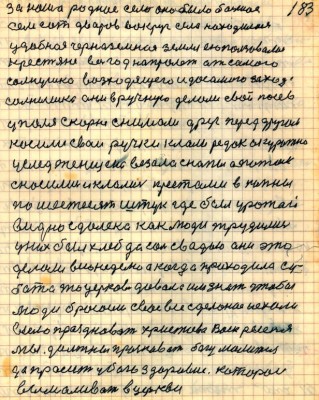 183
за наша родное село оно было болшое
семсот дворов вокруг село находилася
удобная черназемная земля ею ползовалис
крестяне выгодна работ от самого
солнушко возходящего и до самого заход.
солнушко они вручную делали свой посев
у поля скоро снимали друг перед другом
косили свои ручки клали рядок аккуратно
целедженцуски везало снапы а потом
сносили и клали крестами в копны
по шестесят штук где был урожай
видно сдалека как люди трудилис
у них был хлеб да сол свадью они это
делали в понедело а когда приходила су-
бота то церков довала им знат чтобы
люди бросали свое все сделаное и ехали
в село праздноват христова Воскресеня
мы должны празноват богу молится
да просит у бога здоровие. которое
вымаливат в церкви